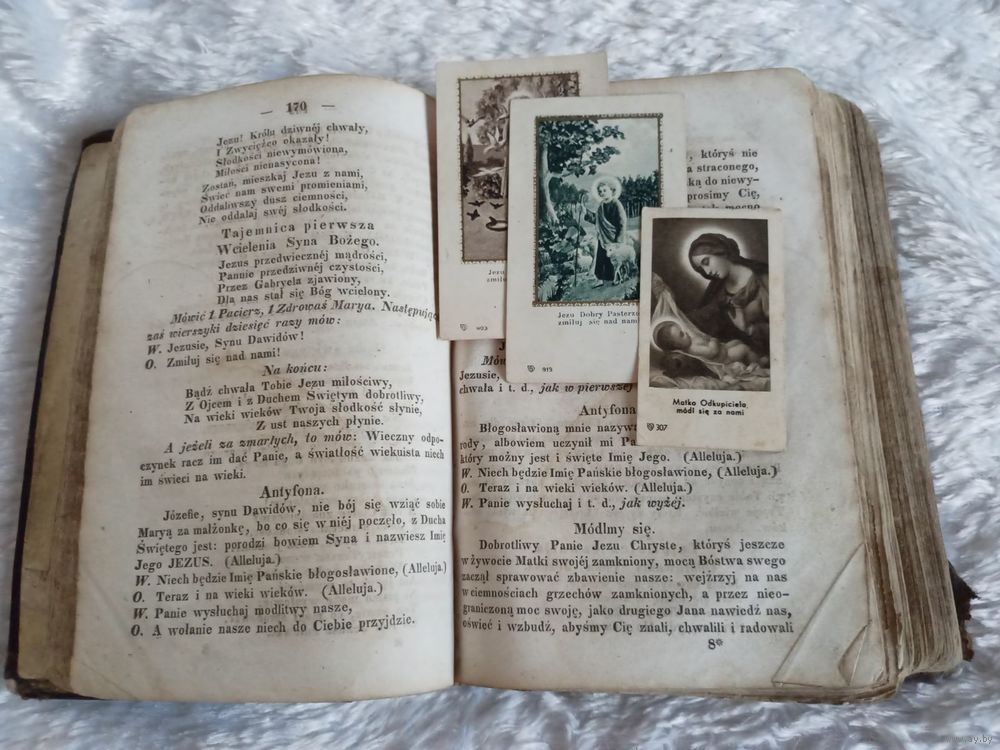 — 170 —
Jezu! Królu dziwnéj chwały,
I Zwycięzco okazały!
Słodkości niewymówiona,
Miłości nienasycona!
Zostań, mieszkaj Jezu z nami,
Świeć nam swemi promieniami,
Oddaliwszy dusz ciemności,
Nie oddalaj swéj słodkości.
Tajemnica pierwsza
Wcielenia Syna Bożego.
Jezus przedwiecznéj mądrości,
Pannie przedziwnéj czystości,
Przez Gabryela zjawiony,
Dla nas stał się Bóg wcielony.
Mówić 1 Pacierz, 1 Zdrowaś Marya. Następując
zaś wierszyki dziesięć razy mów:
W. Jezusie, Synu Dawidów!
O. Zmiłuj się nad nami!
Na końcu:
Bądź chwała Tobie Jezu miłościwy,
Z Ojcem i z Duchem Świętym dobrotliwy,
Na wieki wieków Twoja słodkość słynie,
Z ust naszych płynie.
A jeżeli za zmarłych, to mów: Wieczny odpo-
czynek racz im dać Panie, a światłość wiekuista niech
im świeci na wieki.
Antyfona.
Józefie, synu Dawidów, nie bój się wziąć sobie
Maryą za małżonkę, bo co się w niéj poczęło, z Ducha
Świętego jest: porodzi bowiem Syna i nazwiesz Imię
Jego JEZUS. (Alleluja.)
W. Niech będzie Imię Pańskie błogosławione, (Alleluja.)
O. Teraz i na wieki wieków. (Alleluja.)
W. Panie wysłuchaj modlitwy nasze,
O. A wołanie nasze niech do Ciebie przyjdzie.
Jezu
zmiłu
903
Jezu Dobry Pasterzu
zmiłuj się nad nami
919
Matko Odkupiciela
módl się za nami
307
, któryś nie
a straconego,
ką do niewy-
prosimy Cię,
mocno
Mów
Jezusie,
chwała i t. d., jak w pierwszej
Antyfona
Błogosławioną mnie nazywa
rody, albowiem uczynił mi Pa
który możny jest i święte Imię Jego. (Alleluja.)
W. Niech będzie Imię Pańskie błogosławione, (Alleluja.)
O. Teraz i na wieki wieków. (Alleluja.)
W. Panie wysłuchaj i t. d., jak wyżéj.
Módlmy się.
Dobrotliwy Panie Jezu Chryste, któryś jeszcze
w żywocie Matki swojéj zamkniony, mocą Bóstwa swego
zaczął sprawować zbawienie nasze: wejźrzyj na nas
w ciemnościach grzechów zamknionych, a przez nieo-
graniczoną moc swoję, jako drugiego Jana nawiedź nas,
oświeć i wzbudź, abyśmy Cię znali, chwalili i radowali
8*